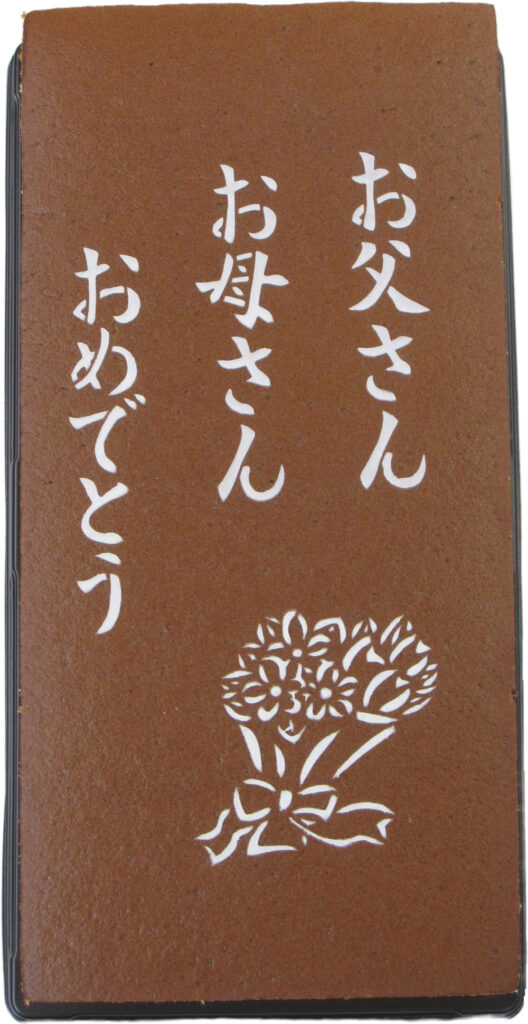 お父さん
お母さん
おめでとう